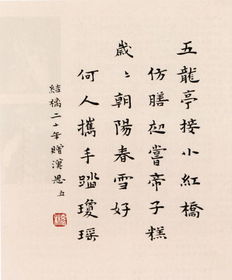 五龍亭接小紅橋
仿膳初嘗帝子糕
歲歲朝陽春雪好
何人攜手踏瓊瑤
結褵二十年贈漢思